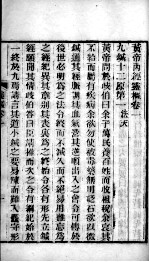 黃帝內經靈樞卷一
九鍼十二原第一 法天
黃帝問於岐伯曰余子萬民養百姓而收租稅余哀其
不給而屬有疾病余欲勿使被毒藥無用砭石欲以微
鍼通其經脈調其血氣營其逆順出入之會令可傳於
後世必明為之法令終而不滅久而不絕易用難忘為
之經紀異其章別其表裏為之終始令各有形先立鍼
經願聞其情岐伯答曰臣請推而次之令有綱紀始於
一終於九焉請言其道小鍼之要易陳而難入麤守形